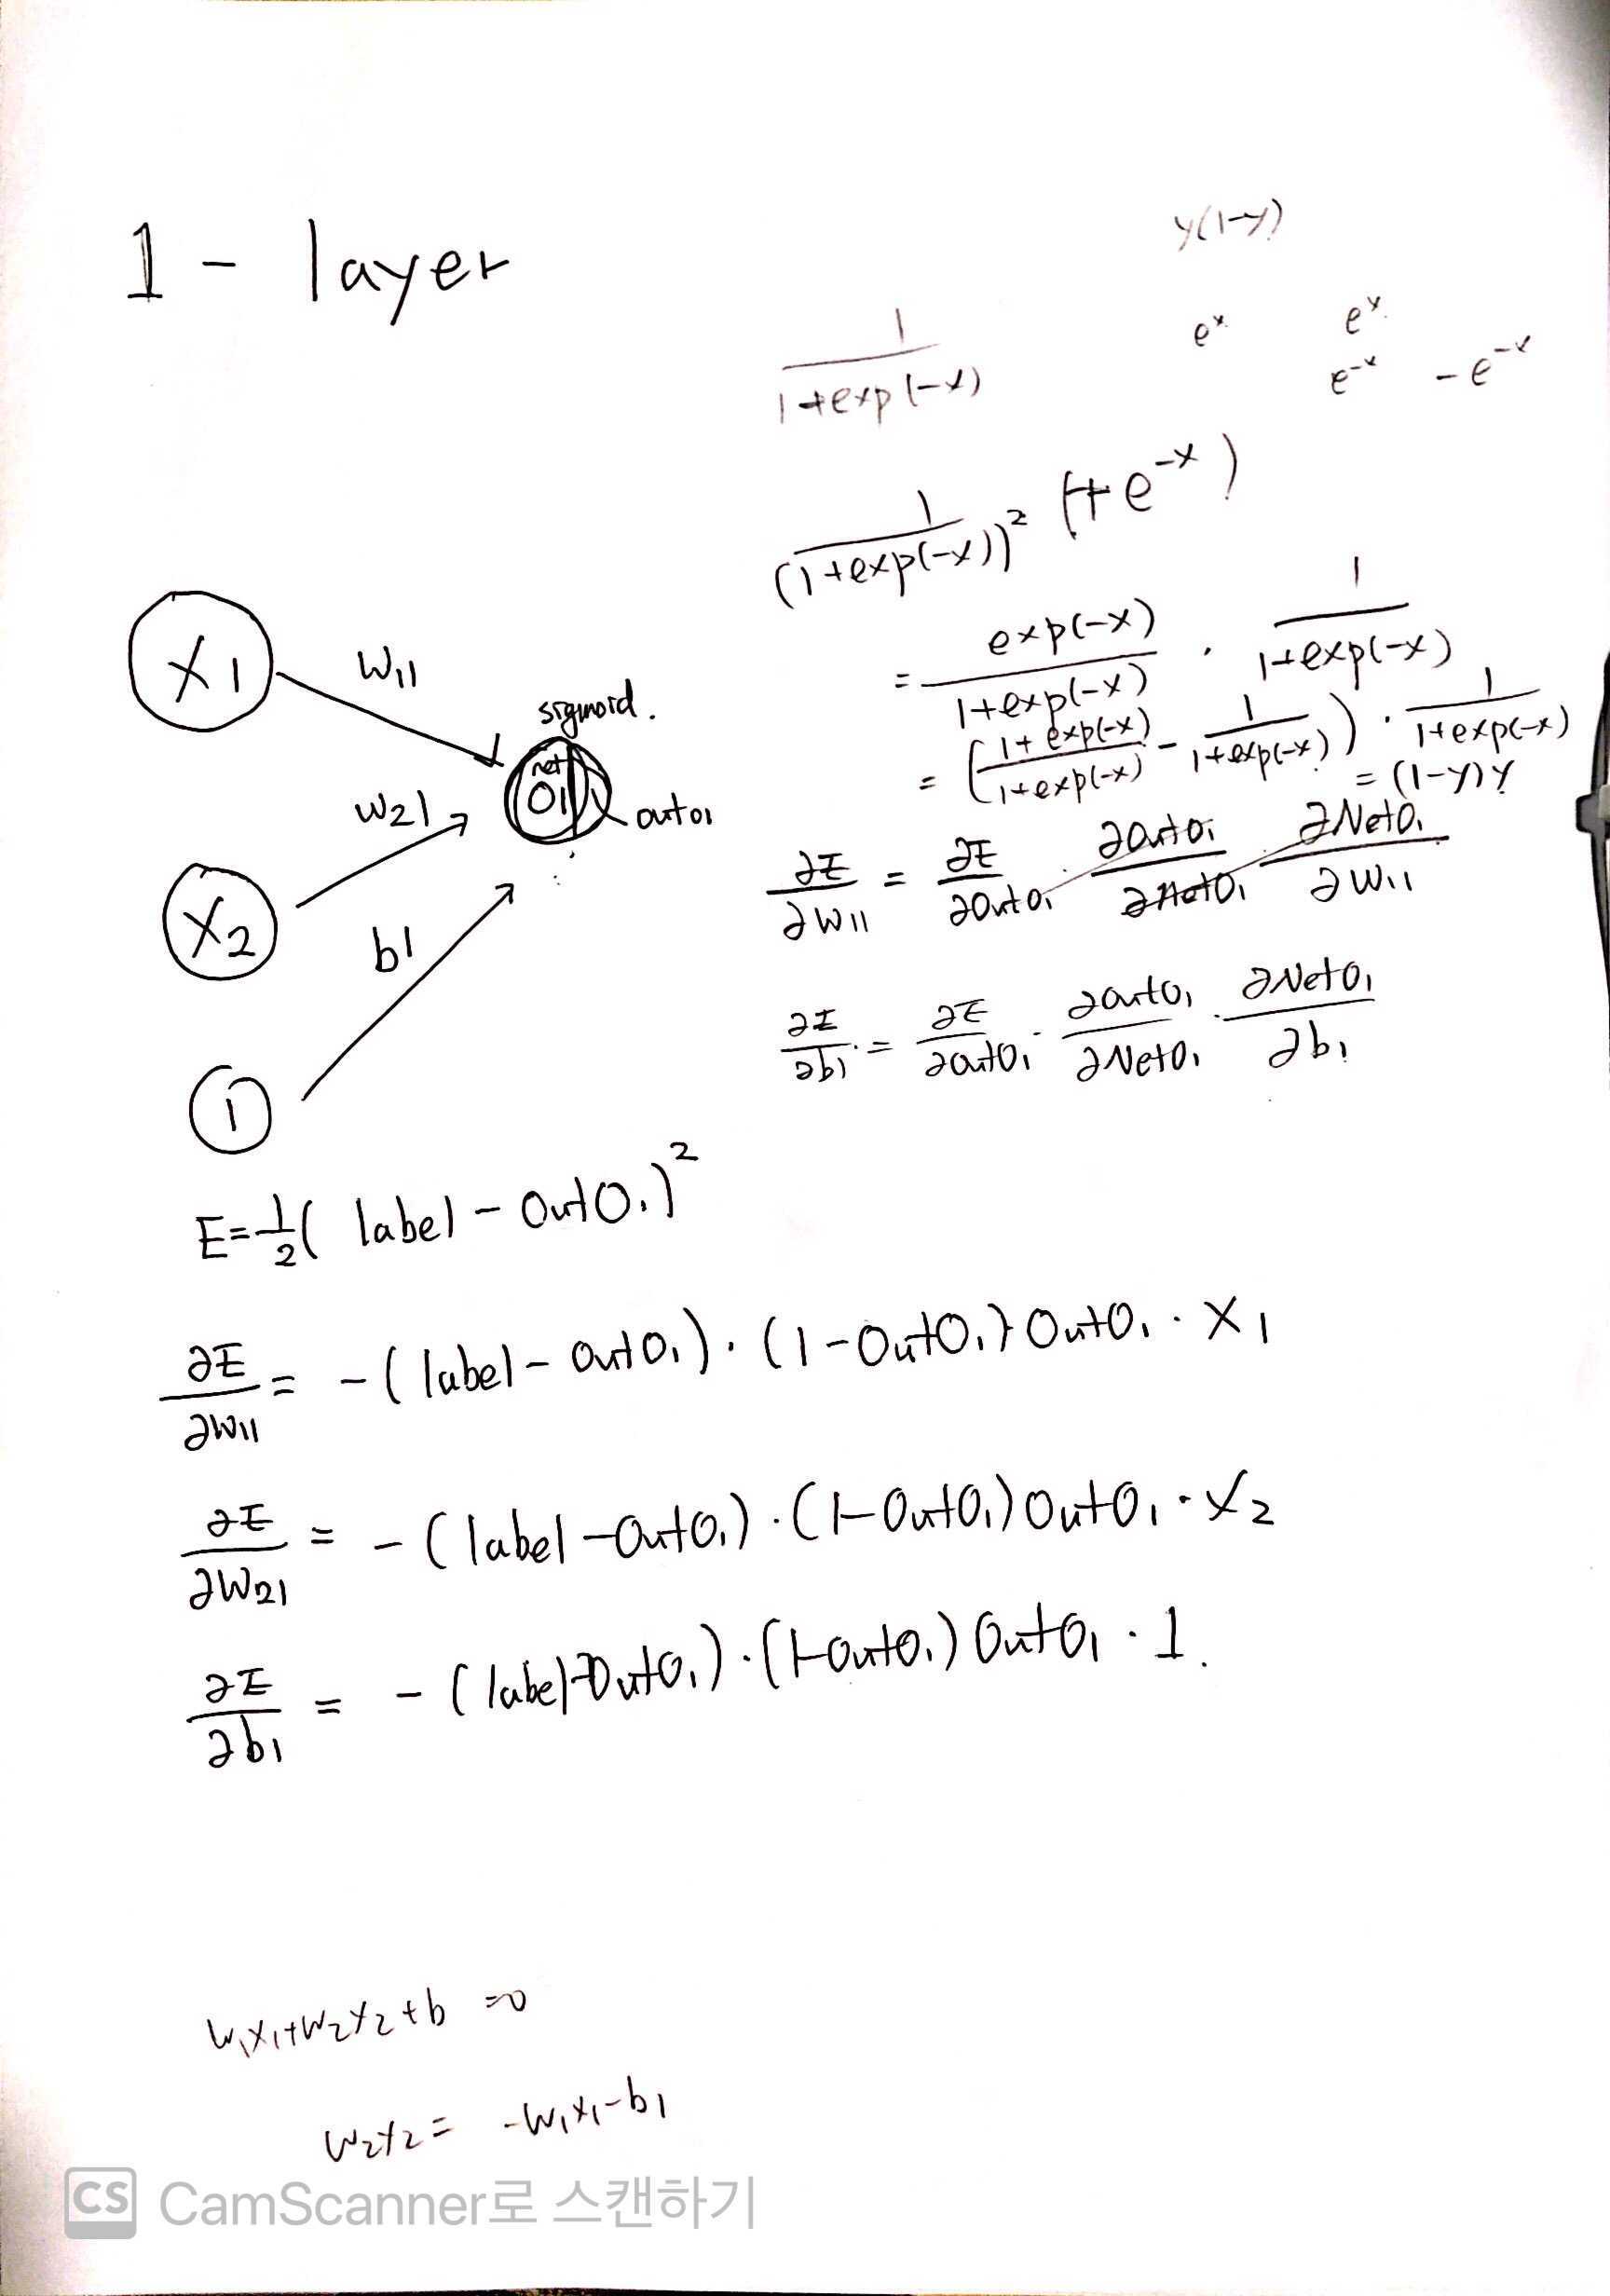 1 - layer
y(1-y)
e^x e^x
e^-x -e^-x
1/(1+exp(-x))
1/(1+exp(-x))^2 (+e^-x)
= exp(-x)/(1+exp(-x)) · 1/(1+exp(-x))
= ((1+exp(-x))/(1+exp(-x)) - 1/(1+exp(-x))) · 1/(1+exp(-x))
= (1-y)y
X1
W11
sigmoid.
net
O1
outo1
W21
X2
b1
1
∂E/∂W11 = ∂E/∂OutO1 · ∂outO1/∂NetO1 · ∂NetO1/∂W11
∂E/∂b1 = ∂E/∂outO1 · ∂outO1/∂NetO1 · ∂NetO1/∂b1
E=1/2( label - OutO1)^2
∂E/∂W11 = -(label - OutO1)·(1-OutO1)OutO1·X1
∂E/∂W21 = -(label-OutO1)·(1-OutO1)OutO1·X2
∂E/∂b1 = -(label-OutO1)·(1-OutO1)OutO1·1.
W1X1+W2X2+b =0
W2X2= -W1X1-b1
CS CamScanner로 스캔하기